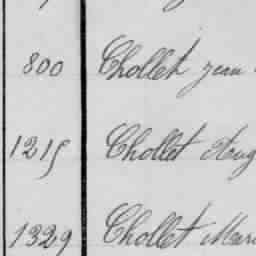 800 Chollet Jean
1215 Chollet Aug
1329 Chollet Mari